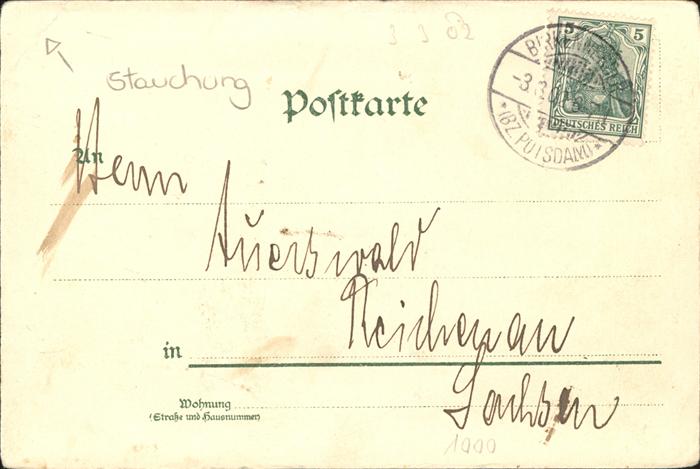 3 3 02
5 5
Stauchung
Postkarte
DEUTSCHES REICH
(BZ. POTSDAM)
An
Herrn
Auerswald
Reichenau
in
Sachsen
Wohnung
(Straße und Hausnummer)
1000